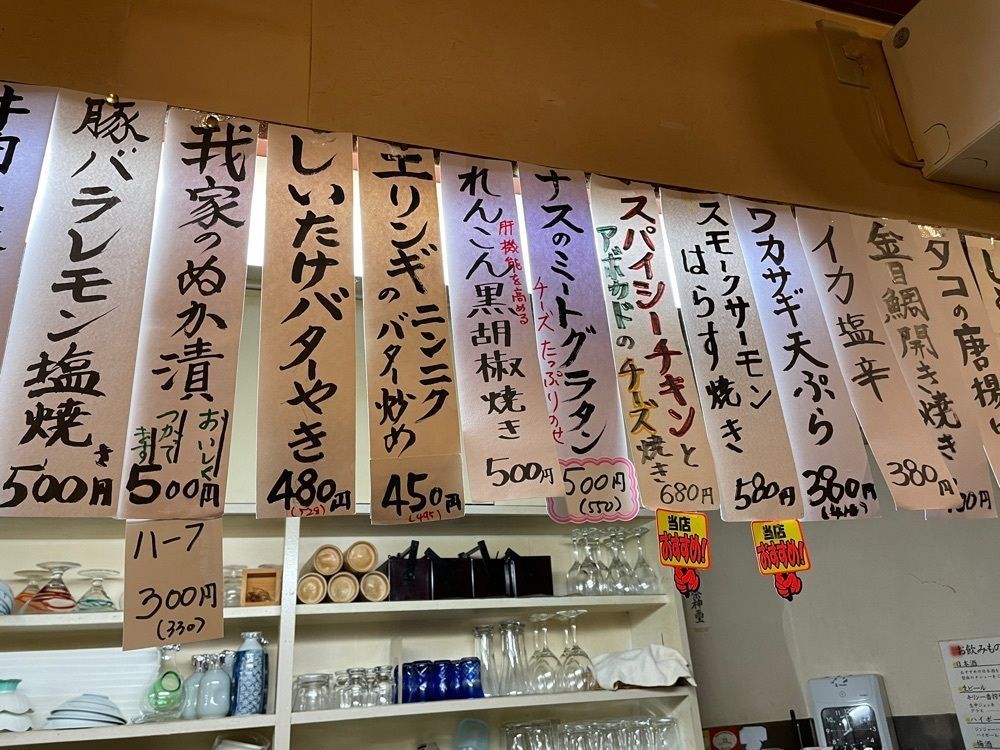 豚バラレモン塩焼き
500円
我家のぬか漬
おいしく
つかって
ます
500円
ハーフ
300円
(330)
しいたけバターやき
480円
(528)
エリンギのニンニク
バター炒め
450円
(495)
れんこん黒胡椒焼き
肝機能を高める
500円
ナスのミートグラタン
チーズたっぷりのせ
500円
(550)
スパイシーチキンと
アボカドのチーズ焼き
680円
当店
おすすめ!
スモークサーモン
はらす焼き
580円
当店
おすすめ!
ワカサギ天ぷら
380円
(418)
イカ塩辛
380円
金目鯛開き焼き
タコの唐揚
お飲みもの
日本酒
生ビール